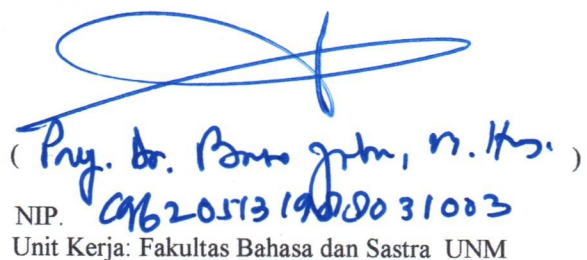 ( Prof. Dr. M. Hum. )
NIP. 196205131988031003
Unit Kerja: Fakultas Bahasa dan Sastra UNM